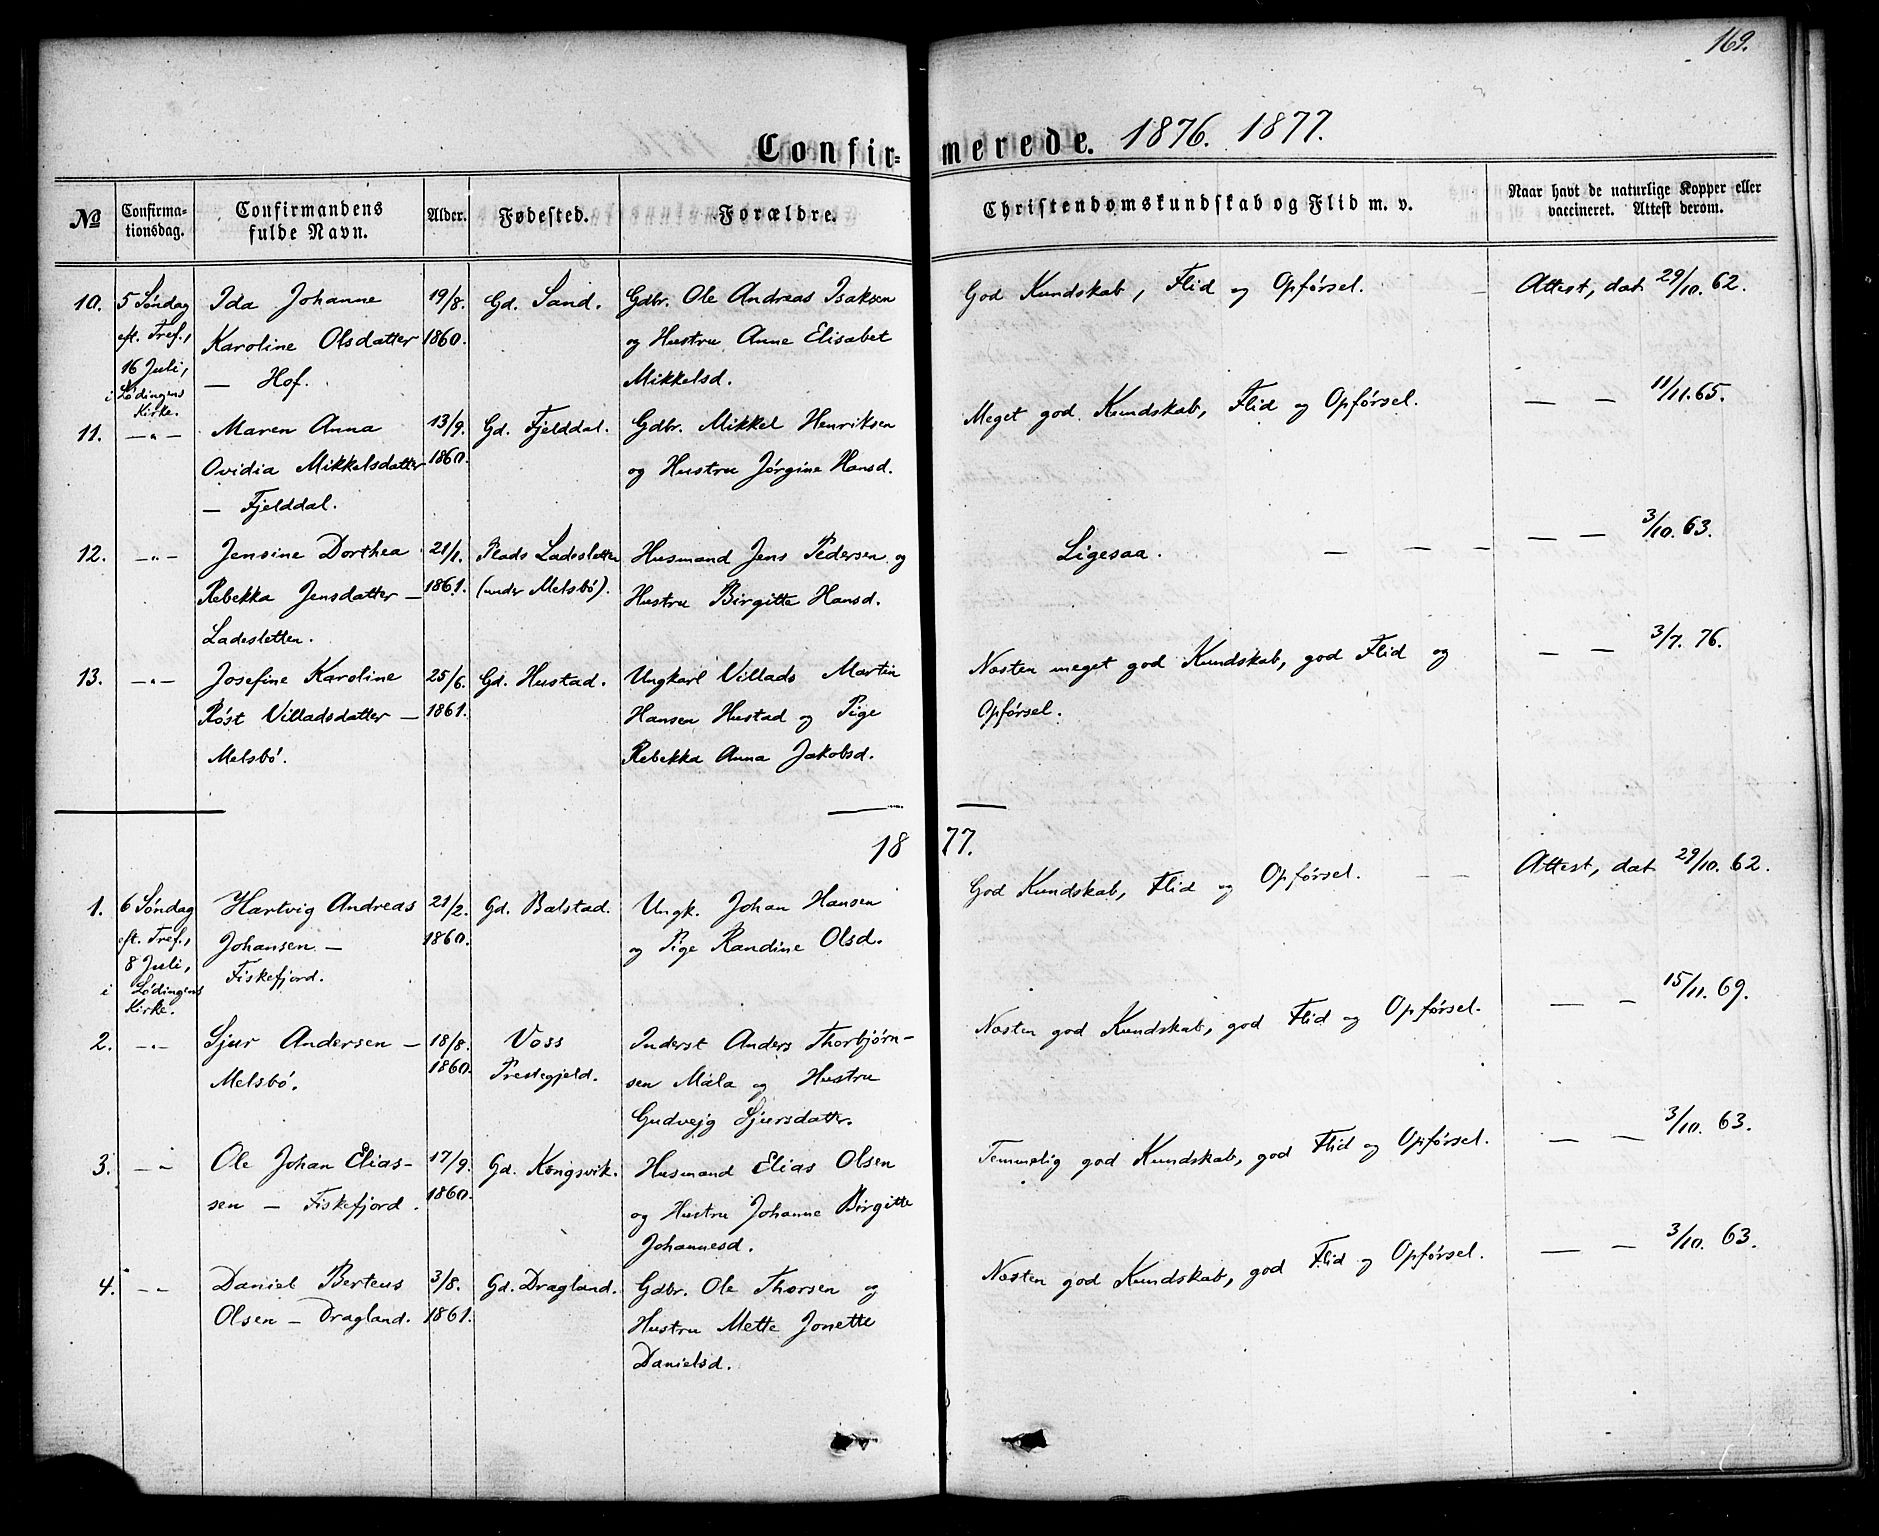 169.
Confir= merede. 1876. 1877.
№ Confirma-tionsdag. Confirmandens fulde Navn. Alder. Fødested. Forældre. Christendomskundskab og Flid m. v. Naar havt de naturlige Kopper eller vaccineret. Attest derom.
10. 5 Søndag Ida Johanne 19/8. Gd. Sand. Gdbr. Ole Andreas Isaksen God Kundskab, Flid og Opførsel. Attest, dat 29/10. 62.
eft. Tref., Karoline Olsdatter 1860. og Hustru Anne Elisabet
16 Juli, — Hof. Mikkelsd.
i Lødingens
Kirke.
11. —„— Maren Anna 13/9. Gd. Fjelddal. Gdbr. Mikkel Henriksen Meget god Kundskab, Flid og Opførsel. — — 11/11. 65.
Ovidia Mikkelsdatter 1860. og Hustru Jørgine Hansd.
— Fjelddal.
12. —„— Jensine Dorthea 21/1. Plads Ladesletten Husmand Jens Pedersen og Ligesaa. — — — — — 3/10. 63.
Rebekka Jensdatter — 1861. (under Melsbø). Hustru Birgitte Hansd.
Ladesletten.
13. —„— Josefine Karoline 25/6. Gd. Hustad. Ungkarl Villads Martin Næsten meget god Kundskab, god Flid og — — 3/7. 76.
Røst Villadsdatter — 1861. Hansen Hustad og Pige Opførsel.
Melsbø. Rebekka Anna Jakobsd.
18 77.
1. 6 Søndag Hartvig Andreas 21/2. Gd. Balstad. Ungk. Johan Hansen God Kundskab, Flid og Opførsel. — — Attest, dat 29/10. 62.
eft. Tref., Johansen — 1860. og Pige Randine Olsd.
8 Juli, Fiskefjord.
i Lødingens
Kirke.
2. —„— Sjur Andersen — 18/8. Voss Inderst Anders Thorbjørn- Næsten god Kundskab, god Flid og Opførsel. — — 15/11. 69.
Melsbø. 1860. Prestegjeld. sen Måla og Hustru
Gudvejg Sjursdatter.
3. —„— Ole Johan Elias- 17/9. Gd. Kongsvik. Husmand Elias Olsen Temmelig god Kundskab, god Flid og Opførsel. — — 3/10. 63.
sen — Fiskefjord. 1860. og Hustru Johanne Birgitte
Johannesd.
4. —„— Daniel Berteus 3/8. Gd. Dragland. Gdbr. Ole Thorsen og Næsten god Kundskab, god Flid og Opførsel. — — 3/10. 63.
Olsen — Dragland. 1861. Hustru Mette Jonette
Danielsd.